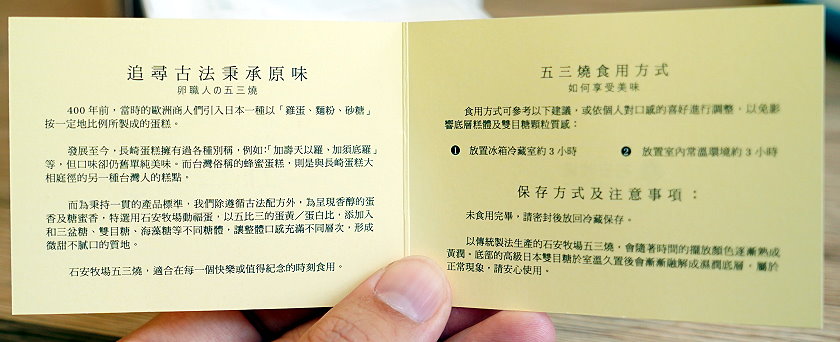 追尋古法秉承原味
卵職人の五三燒
400年前，當時的歐洲商人們引入日本一種以「雞蛋、麵粉、砂糖」
按一定地比例所製成的蛋糕。
發展至今，長崎蛋糕擁有過各種別稱，例如:「加壽天以羅、加須底羅」
等，但口味卻仍舊單純美味。而台灣俗稱的蜂蜜蛋糕，則是與長崎蛋糕大
相庭徑的另一種台灣人的糕點。
而為秉持一貫的產品標準，我們除遵循古法配方外，為呈現香醇的蛋
香及糖蜜香，特選用石安牧場動福蛋，以五比三的蛋黃／蛋白比，添加入
和三盆糖、雙目糖、海藻糖等不同糖體，讓整體口感充滿不同層次，形成
微甜不膩口的質地。
石安牧場五三燒，適合在每一個快樂或值得紀念的時刻食用。
五三燒食用方式
如何享受美味
食用方式可參考以下建議，或依個人對口感的喜好進行調整，以免影
響底層糕體及雙目糖顆粒質感：
❶ 放置冰箱冷藏室約3小時 ❷ 放置室內常溫環境約3小時
保存方式及注意事項：
未食用完畢，請密封後放回冷藏保存。
以傳統製法生產的石安牧場五三燒，會隨著時間的擺放顏色逐漸熟成
黃潤，底部的高級日本雙目糖於室溫久置後會漸漸融解成濕潤底層，屬於
正常現象，請安心使用。